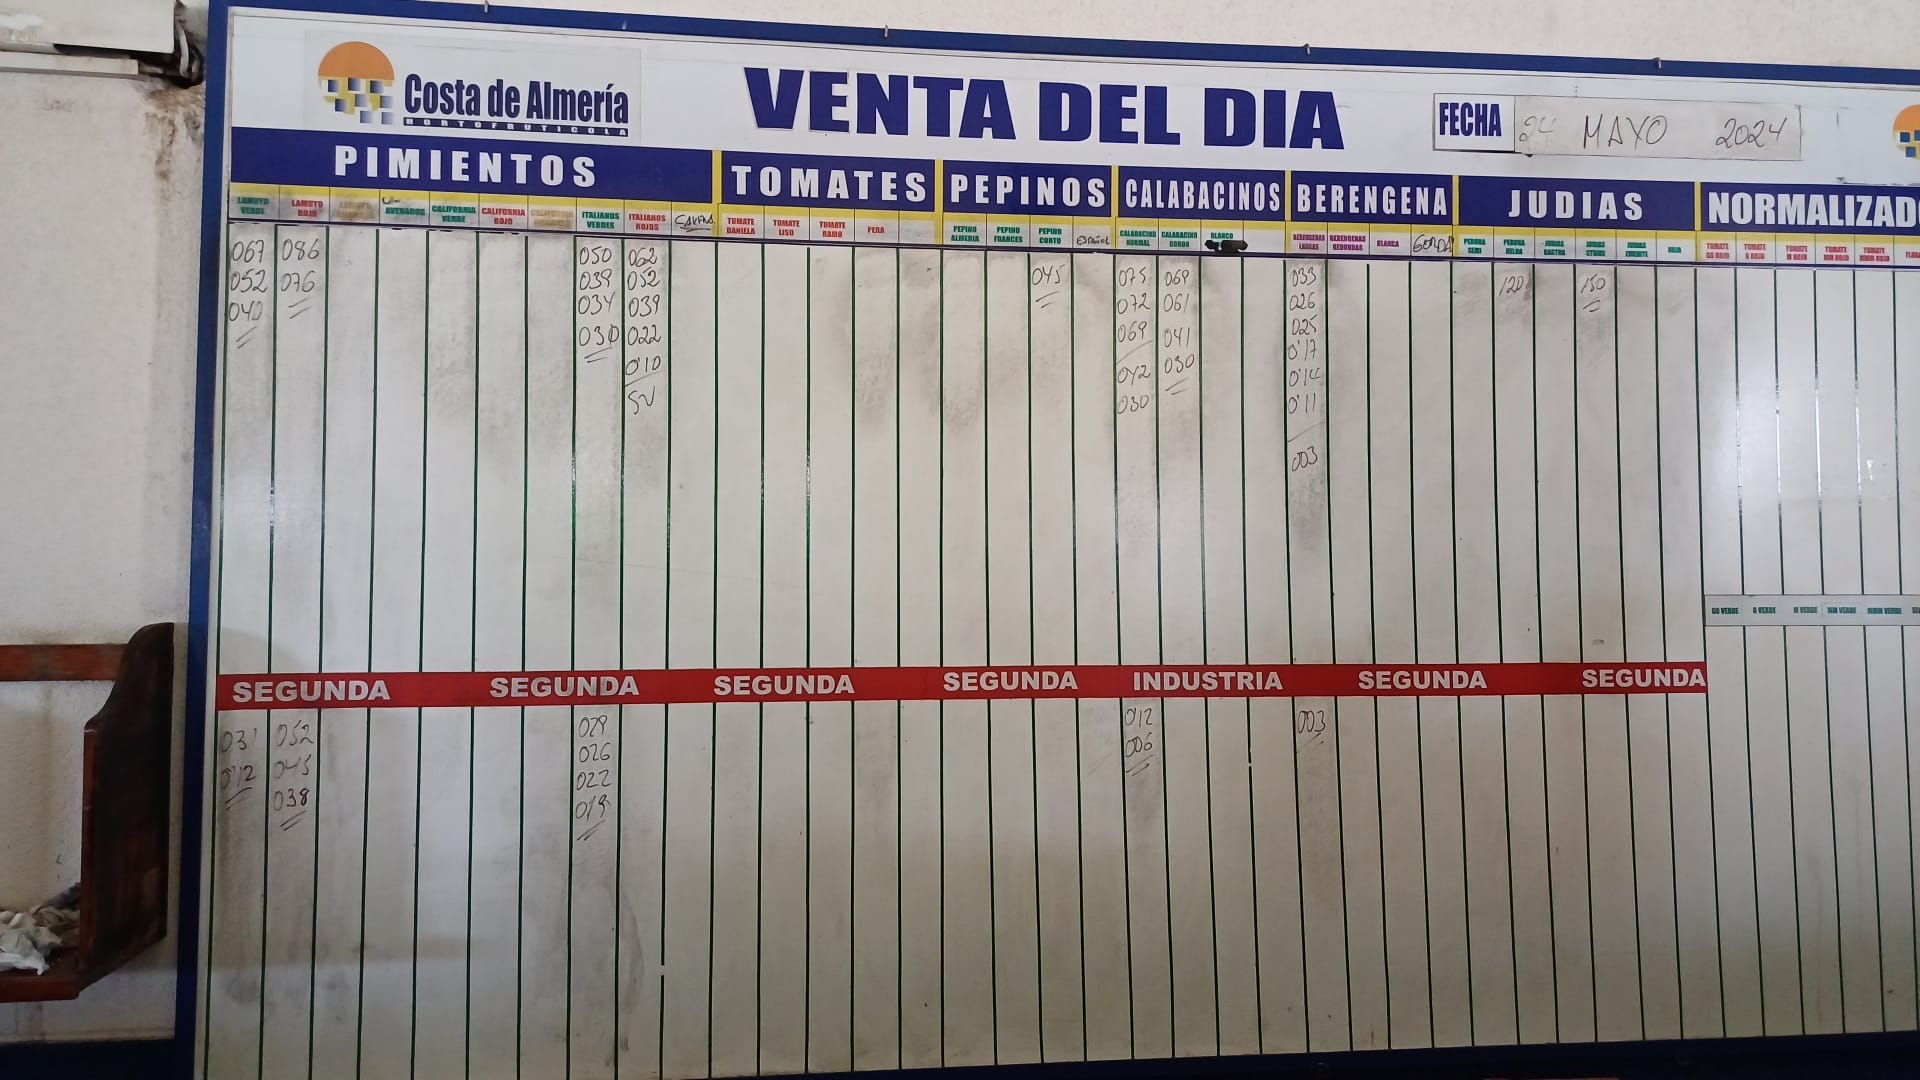 Costa de Almería
HORTOFRUTICOLA
VENTA DEL DIA
FECHA 24 MAYO 2024
PIMIENTOS TOMATES PEPINOS CALABACINOS BERENGENA JUDIAS NORMALIZADO
LAMUYO VERDE
LAMUYO ROJO
CALIFORNIA VERDE
CALIFORNIA ROJO
ITALIANOS VERDES
ITALIANOS ROJOS
TOMATE DANIELA
TOMATE LISO
TOMATE RAMO
PERA
PEPINO ALMERIA
PEPINO FRANCES
PEPINO CORTO
ESPAÑOL
CALABACINO NORMAL
CALABACINO GORDO
BLANCO
BERENGENAS LARGAS
BERENGENAS REDONDAS
BLANCA
GORDA
PERONA SEMI
PERONA
ROJA
067 086 050 062 045 075 069 033 120 150
052 076 039 052 072 061 026
040 034 039 069 041 025
030 022 042 030 0'17
0'10 030 0'14
SV 0'11
003
GG VERDE G VERDE M VERDE MM VERDE MMM VERDE
SEGUNDA SEGUNDA SEGUNDA SEGUNDA INDUSTRIA SEGUNDA SEGUNDA
031 052 029 0'12 003
0'12 045 026 006
038 022
019